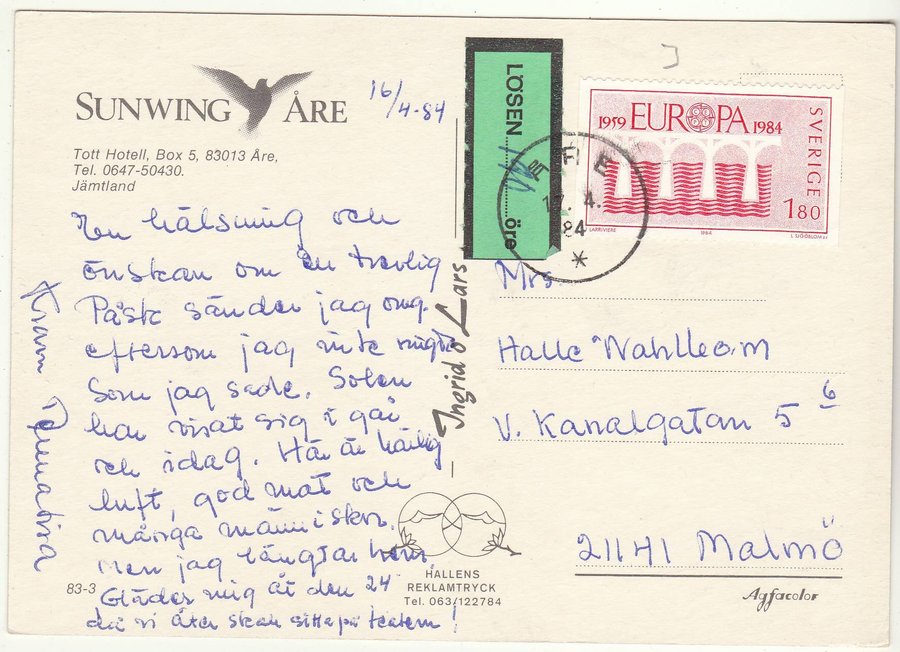 SUNWING ÅRE
16/4-84
Tott Hotell, Box 5, 83013 Åre,
Tel. 0647-50430.
Jämtland
En hälsning och
önskan om en trevlig
Påsk sänder jag
eftersom jag inte ringde
som jag sade. Solen
har visat sig i går
och idag. Här är härlig
luft, god mat och
många människor.
Men jag längtar hem.
Gläder mig åt den 24
då vi åter skall sitta på teatern!
Kram
83-3
HALLENS
REKLAMTRYCK
Tel. 063/122784
Ingrid o Lars
LÖSEN.......öre
ÅRE
17. 4.
84
1959 EUROPA 1984
SVERIGE
180
LARRIVIERE
1984
Mrs.
Halle
V. Kanalgatan 5 6
21141 Malmö
Agfacolor